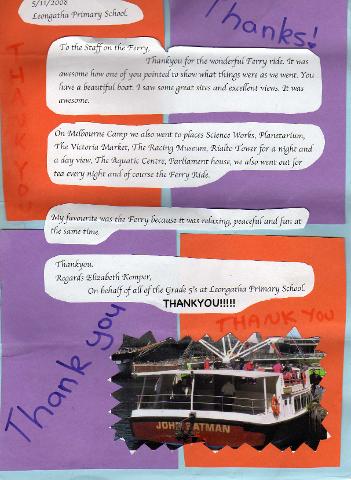 5/11/2008
Leongatha Primary School.
Thanks!
THANKYOU
To the Staff on the Ferry,
Thankyou for the wonderful Ferry ride. It was
awesome how one of you pointed to show what things were as we went. You
have a beautiful boat. I saw some great sites and excellent views. It was
awesome.
On Melbourne Camp we also went to places Science Works, Planetarium,
The Victoria Market, The Racing Museum, Rialto Tower for a night and
a day view, The Aquatic Centre, Parliament house, we also went out for
tea every night and of course the Ferry Ride.
My favourite was the Ferry because it was relaxing, peaceful and fun at
the same time.
Thankyou.
Regards Elizabeth Kompar,
On behalf of all of the Grade 5's at Leongatha Primary School.
THANKYOU!!!!!
THANK YOU
Thank you
JOHN BATMAN